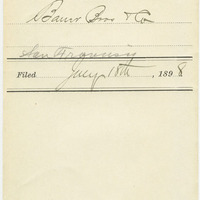 Bauer Bros & Co
San Francisco
Filed July 18th, 1898